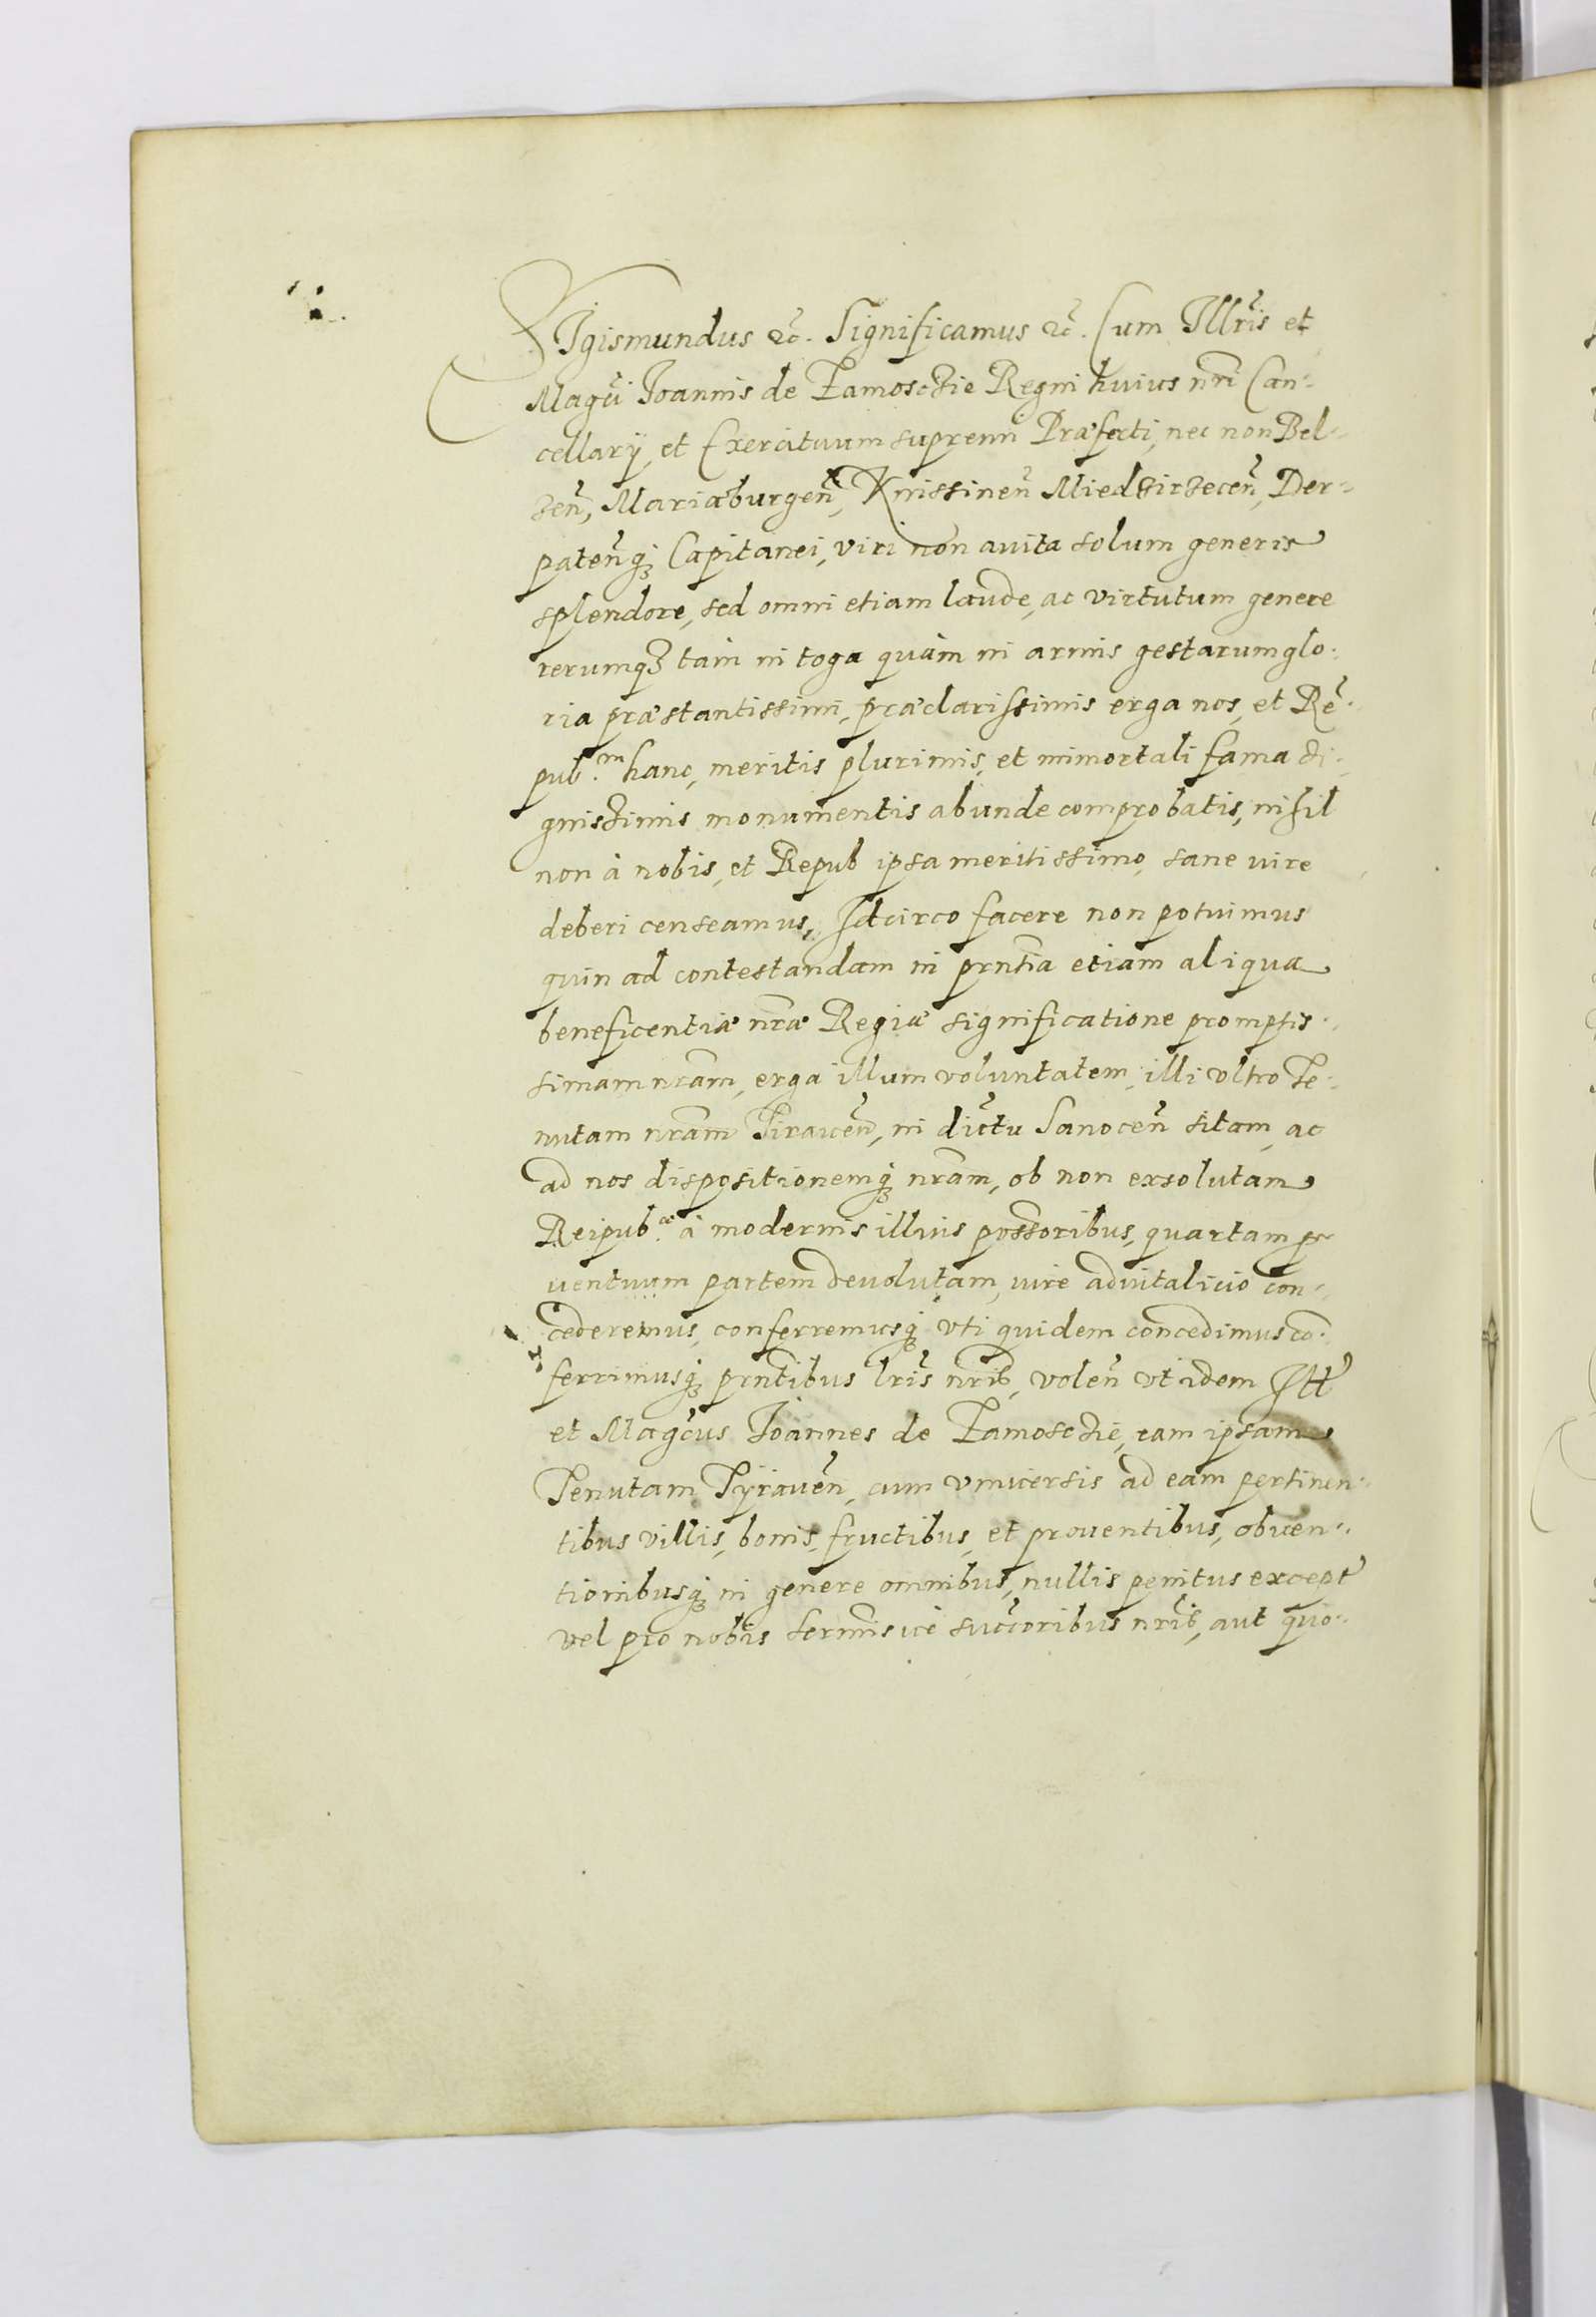 SIgismundus &c̃. Significamus &c̃. Cum Illr̃is et
Magc̃i Joannis de Zamoschie Regni huius nr̃i Can-
cellarij, et Exercituum supremi Præfecti, nec non Bel-
zeñ, Mariæburgeñ, Knissineñ Miedzirzeceñ, Der-
pateñq; Capitanei, viri non auita solum generis
splendore, sed omni etiam laude, ac virtutum genere
rerumq; tam in toga quàm in armis gestarum glo-
ria præstantissimi, præclarissimis erga nos, et Rẽ-
pub.m hanc, meritis plurimis, et immortali fama di-
gnissimis monumentis abunde comprobatis, nihil
non à nobis, et Repub ipsa meritissimo, sane iure
deberi censeamus, Idcirco facere non potuimus
quin ad contestandam in prñtia etiam aliqua
beneficentiæ nr̃æ Regiæ significatione promptis-
simam nr̃am, erga illum voluntatem, illi vltro Te-
nutam nr̃am Tiraueñ, in dic̃tu Sanoceñ sitam, ac
ad nos dispositionemq; nr̃am, ob non exsolutam
Reipub.æ à modernis illius possoribus, quartam pro
uentuum partem deuolutam, iure aduitalicio con-
cederemus, conferremusq; vti quidem concedimus cõ-
ferrimusq; prñtibus lr̃is nr̃is, voleñ vt idem Ill
et Magc̃us Joannes de Zamoschie, eam ipsam
Tenutam Tÿraueñ, cum vniuersis ad eam pertinen-
tibus villis, bonis, fructibus, et prouentibus, obuen-
tionibusq; in genere omnibus, nullis penitus except
vel pro nobis sermisue succ̃oribus nr̃is, aut quo-